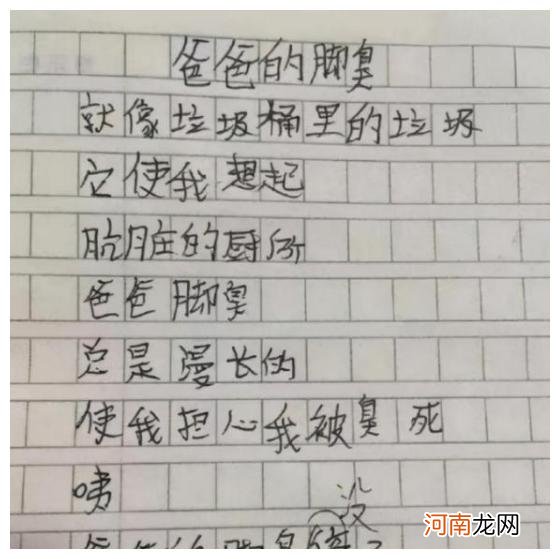 爸爸的脚臭
就像垃圾桶里的垃圾
它使我想起
肮脏的厨所
爸爸脚臭
总是漫长的
使我担心我被臭死
咦
没
河南龙网